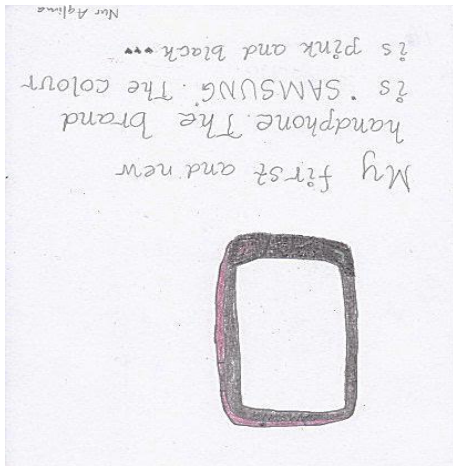 My first and new
handphone. The brand
is "SAMSUNG". The colour
is pink and black...
Nur Aqlima